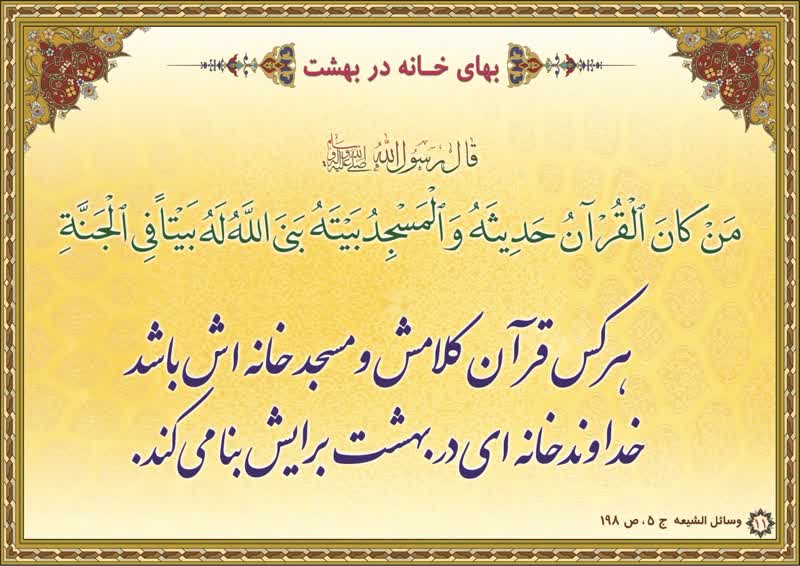 بهای خانه در بهشت
قال رسول الله صلی الله علیه و آله وسلم
مَنْ کانَ الْقُرْآنُ حَدیثَهُ وَ الْمَسْجِدُ بَیْتَهُ بَنَی اللهُ لَهُ بَیْتاً فِی الْجَنَّةِ
هر کس قرآن کلامش و مسجد خانه اش باشد
خداوند خانه ای در بهشت برایش بنا می کند.
۱۱ وسائل الشیعه ج ۵، ص ۱۹۸